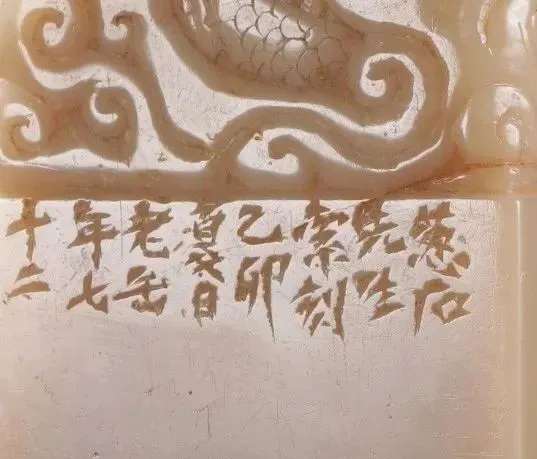 葱石
先生
索刻
乙卯
夏日
老缶
年七
十二